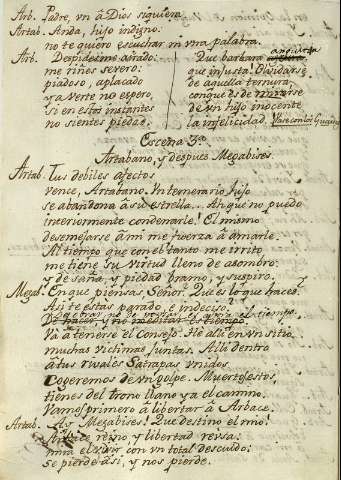 Arb. Padre, vn â Dios siquiera.
Artab. Anda, hijo indigno:
no te quiero escuchar ni vna palabra.
Arb. Despidesme airado,
me riñes severo:
piadoso, aplacado
ya verte no espero,
si en estos instantes
no sientes piedad.
Que barbara
que injusta! Olvidarse
de aquella ternura,
de vn hijo inocente
la infelicidad.
Escena 3ª
Artabano, y despues Megabises.
Artab. Tus debiles afectos
vence, Artabano. Intemerario hijo
se abandona â su estrella. Ah que no puedo
interiormente condenarle! El mismo
desemejarse â mi me fuerza â amarle.
Al tiempo que con el tanto me irrito
me tiene su virtud lleno de asombro:
y de saña, y piedad bramo, y suspiro.
Megab. En que piensas Señor? Que es lo que haces?
Asi te estas parado, e indeciso?
Và â tenerse el Consejo. He alli en vn sitio
muchas victimas juntas. Allà dentro
â tus rivales Satrapas vnidos
Cogeremos de vn golpe. Muertos estos,
tienes del trono llano ya el camino.
Vamos primero â libertar â Arbace.
Artab. Megabises! Que destino el mio!
reyno, y libertad reusa:
mira el vivir con vn total descuido:
se pierde asi, y nos pierde.